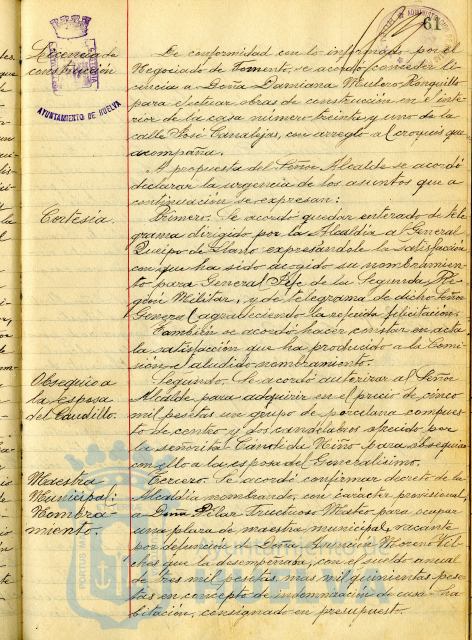 61
Licencia de
construcción
AYUNTAMIENTO DE HUELVA
De conformidad con lo informado por el
Negociado de Fomento, se acordó conceder li-
cencia a Doña Damiana Mulero Ronquillo
para efectuar obras de construcción en el inte-
rior de la casa número treinta y uno de la
calle José Canalejas, con arreglo al croquis que
acompaña.
A propuesta del Señor Alcalde se acordó
declarar la urgencia de los asuntos que a
continuación se expresan:
Cortesía.
Primero. Se acordó quedar enterado de tele-
grama dirigido por la Alcaldía al General
Queipo de Llano expresándole la satisfacción
con que ha sido acogido su nombramien-
to para General Jefe de la Segunda Re-
gión Militar, y de telegrama de dicho Señor
General agradeciendo la referida felicitación.
También se acordó hacer constar en acta
la satisfacción que ha producido a la Comi-
sión el aludido nombramiento.
Obsequio a
la esposa
del Caudillo.
Segundo. Se acordó autorizar al Señor
Alcalde para adquirir en el precio de cinco
mil pesetas un grupo de porcelana compues-
to de centro y dos candelabros ofrecido por
la señorita Candida Niño para obsequiar
con ello a la esposa del Generalísimo.
Maestra
Municipal:
Nombra-
miento.
Tercero. Se acordó confirmar decreto de la
Alcaldía nombrando, con carácter provisional,
a Doña Pilar Fructuoso para ocupar
una plaza de maestra municipal, vacante
por defunción de Doña Asunción Moreno
ches que la desempeñaba, con el sueldo anual
de tres mil pesetas, mas mil quinientas pese-
tas en concepto de indemnización de casa-ha-
bitación, consignado en presupuesto.
PORTUS
Ayuntamiento de
HUELVA